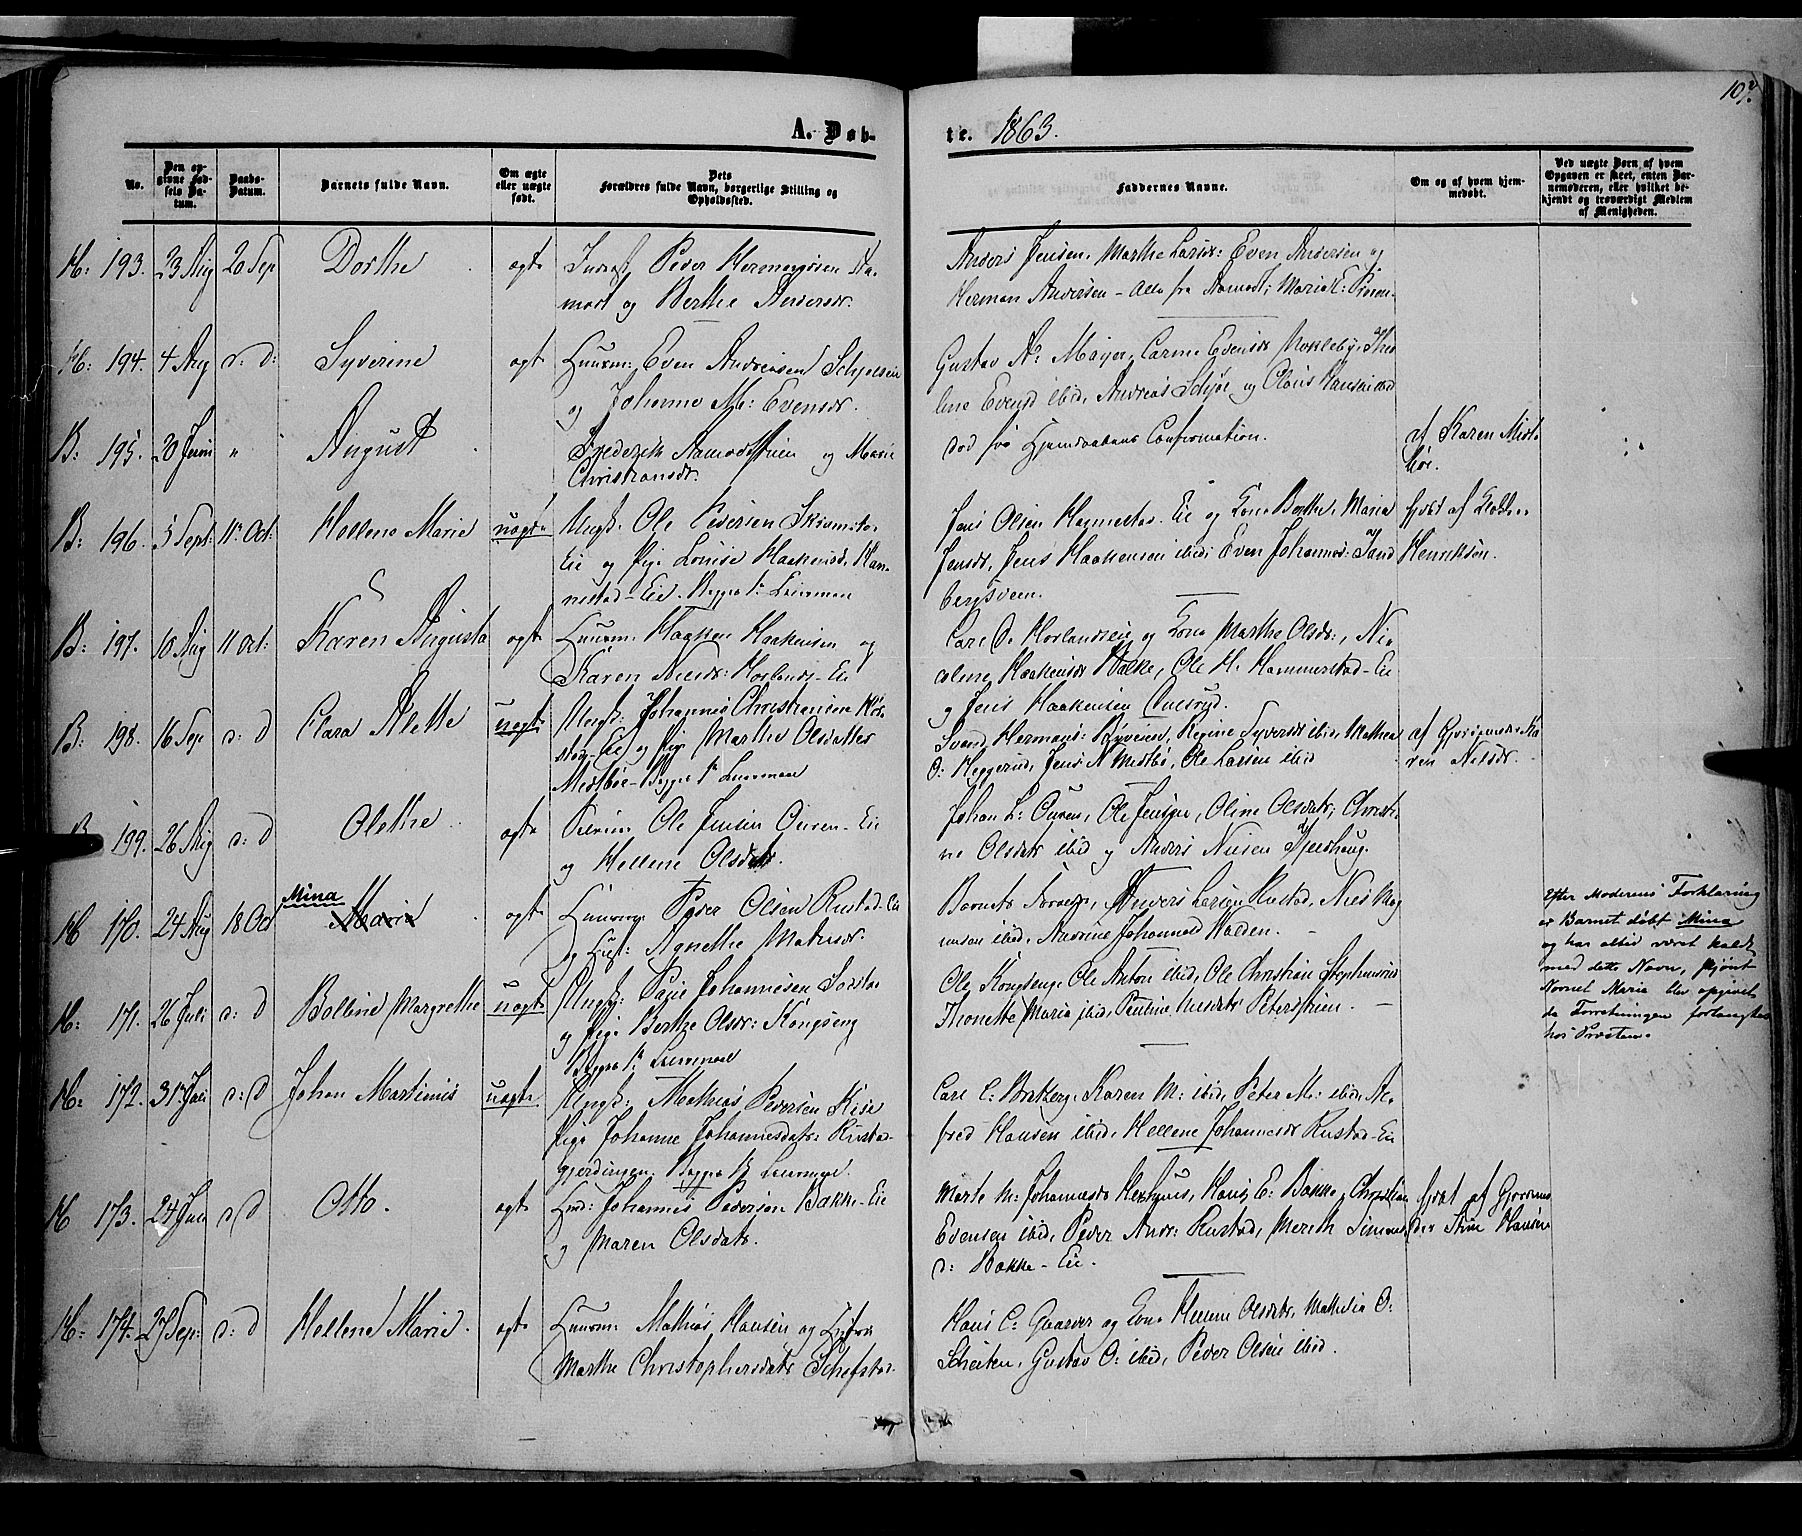 107.
A. Døb-
te. 1863.
No.
Den op-
givne Fød-
sels Da-
tum.
Daabs-
Datum.
Barnets fulde Navn.
Om ægte
eller uægte
født.
Dets
Forældres fulde Navn, borgerlige Stilling og
Opholdssted.
Faddernes Navne.
Om og af hvem hjem-
medøbt.
Ved uægte Børn af hvem
Opgaven er skeet, enten Bar-
nemoderen, eller hvilket be-
kjendt og troværdigt Medlem
af Menigheden.
193. 23 Aug 20 Sep Dorthe ægte Peder Hermansen Aa-
modt og Berthe Andersdr.
Anders Jensen, Marthe Larsdr: Even Andersen og
Herman Andersen - Alle fra Aamodt; Marie E:
194. 4 Aug d: d: Syverine ægt Huusm: Even Andreasen
og Johanne M: Evensdr.
Gustav A: Moijer, Carine Evensdr Mokleby, Tho
line Evensd ibid, Andreas og Claus Hansen ibid
B: 195. 20 Juni " August
Frederik og Marie
Christiansdr.
død før Hjemdaabens Confirmation.
af Karen Mist-
bøe.
B: 196. 5 Sept: 11 Oct: Hellene Marie uægte Ungk: Ole Pedersen
Eie og Pige Lovise Haakensdr. Ham-
merstad-Eie. Begges 1ste Leiermaal
Jens Olsen Hammerstad-Eie og Kone Berthe, Maria
Jensdr, Jens Haakensen ibid: Even Johannes: Sand
bergsveen.
Henriksen.
B: 197. 10 Aug 11 Oct: Karen Augusta ægte Huusm: Haaken Haakensen og
Karen Nilsdr: Horlands-Eie
Carl D. Horlandseie og Kone Marthe Olsdr:, Ni-
coline Haakensdr Balke, Ole H. Hammerstad-Eie
og Jens Haakensen
B: 198. 16 Sep d: d Clara Alette uægte Ungk: Johannes Christiansen
stad-Eie og Pige Marthe Olsdatter
Mistbøe-Begges 1ste Leiermaal
Svend Hermans: Regine Syversdr ibid, Mathea
O: Heggerud, Jens A Mistbø, Ole Larsen ibid
af Gjordemoder Ka
ren Nilsdr.
199. 26 Aug d: d Olethe ægte Ole Jensen Ouren-Eie
og Hellene Olsdatr.
Johan L: Ouren, Ole Jenssen, Oline Olsdatr, Christi-
ne Olsdatr ibid og Anders Nilsen Fjeldhaug.
H 170. 24 Aug 18 Oct Mina Maria ægte Huusm: Peder Olsen Rustad-Eie
og Hust: Agnethe Matesdr.
Barnets Forældre, Anders Larsen Rustad, Nils Mag
nusen ibid, Andrine Johannesd Valden. -
Efter Moderens Forklaring
er Barnet døbt Mina
og har altid været kaldt
med dette Navn, skjønt
Navnet Maria blev opgivet
da Forretningen forlangtes
hos Præsten.
H: 171. 26 Juli d: d Bolline Margrethe uægte Ungk: Johannesen
og Pige Berthe Olsdr: Kongseng
Begges 1ste Leiermaal
Ole Kongseng, Ole Anton ibid, Ole Christian
Thonette Maria ibid, Pauline -
H: 172. 31 Juli d: d Johan Martinius uægte Ungk: Mathias Pedersen Kise
Pige Johanne Johannesdatr: Rustad-
gjerdingen. Begges 1ste Leiermaal.
Carl C: Bratberg, Karen M: ibid, Peter M: ibid, Al-
fred Hansen ibid, Hellene Johannesdr Rustad-Eie
H 173. 24 Juli d: d Otto. ægte Johannes Pedersen Bakke-Eie
og Maren Olsdatr.
Marte M: Johannesdr Hans E: Bakke, Christian
Evensen ibid, Peder Andr: Rustad, Merith Simens
d: Bakke-Eie.
af Gjordemo
der Stine Hansen
H: 174. 27 Sep: d: d Hellene Marie. ægte Huusm Mathias Hansen og Hustru
Marthe Christophersdatr
Hans C: Gaarder og Kone Helene Olsdatr, Mathilia O:
Gustav O: ibid, Peder Olsen ibid.